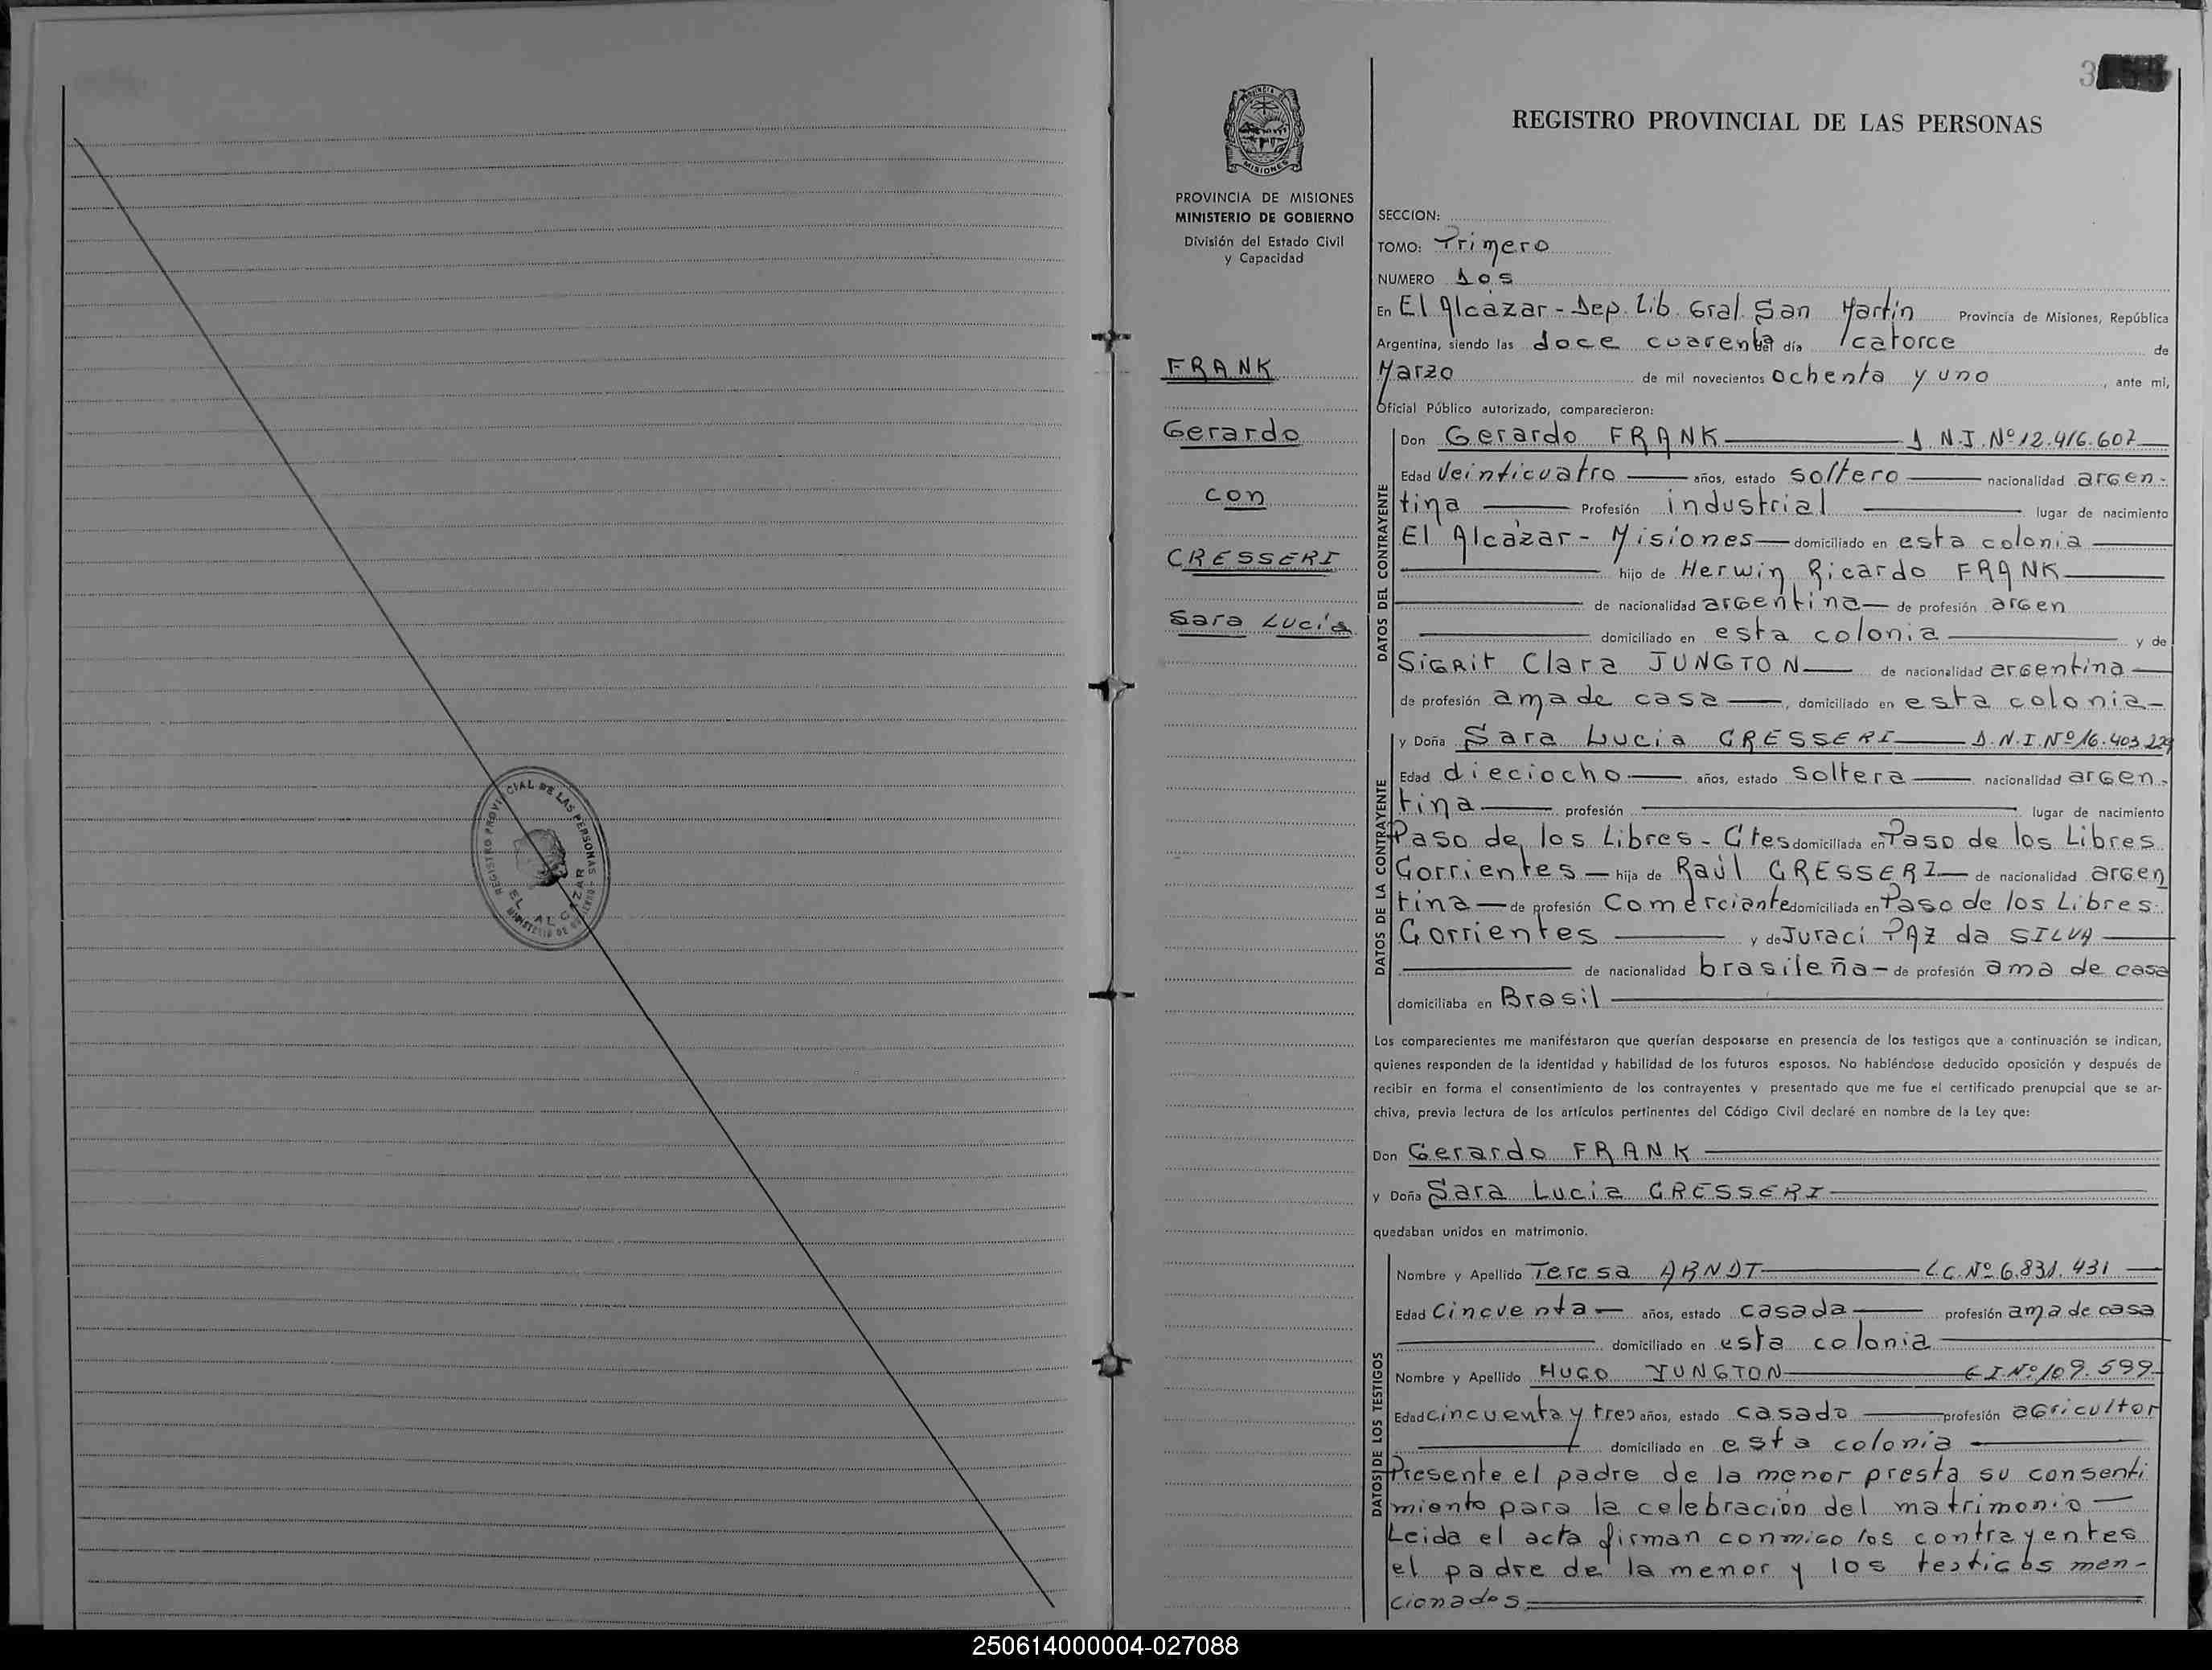 REGISTRO PROVINCIAL DE LAS PERSONAS
EL ALCAZAR
3
PROVINCIA DE MISIONES
MINISTERIO DE GOBIERNO
División del Estado Civil
y Capacidad
FRANK
Gerardo
con
CRESSERI
Sara Lucía
REGISTRO PROVINCIAL DE LAS PERSONAS
SECCION:
TOMO: Primero
NUMERO Dos
En El Alcázar - Dep. Lib. Gral. San Martín Provincia de Misiones, República
Argentina, siendo las doce cuarenta del día catorce de
Marzo de mil novecientos ochenta y uno, ante mi,
Oficial Público autorizado, comparecieron:
DATOS DEL CONTRAYENTE
Don Gerardo FRANK D.N.I. Nº 12.416.607
Edad Veinticuatro años, estado soltero nacionalidad argen-
tina Profesión industrial lugar de nacimiento
El Alcázar - Misiones domiciliado en esta colonia
hijo de Herwin Ricardo FRANK
de nacionalidad argentina de profesión argen
domiciliado en esta colonia y de
Sigrit Clara JUNGTON de nacionalidad argentina
de profesión ama de casa, domiciliado en esta colonia-
DATOS DE LA CONTRAYENTE
y Doña Sara Lucia CRESSERI D.N.I. Nº 16.403.229
Edad dieciocho años, estado soltera nacionalidad argen-
tina profesión lugar de nacimiento
Paso de los Libres - Ctes domiciliada en Paso de los Libres
Corrientes - hija de Raúl CRESSERI de nacionalidad argen
tina de profesión Comerciante domiciliada en Paso de los Libres
Corrientes y de Juraci PAZ da SILVA
de nacionalidad brasileña de profesión ama de casa
domiciliaba en Brasil
Los comparecientes me manifestaron que querían desposarse en presencia de los testigos que a continuación se indican,
quienes responden de la identidad y habilidad de los futuros esposos. No habiéndose deducido oposición y después de
recibir en forma el consentimiento de los contrayentes y presentado que me fue el certificado prenupcial que se ar-
chiva, previa lectura de los artículos pertinentes del Código Civil declaré en nombre de la Ley que:
Don Gerardo FRANK
y Doña Sara Lucia CRESSERI
quedaban unidos en matrimonio.
DATOS DE LOS TESTIGOS
Nombre y Apellido Teresa ARNDT L.C. Nº 6.831.431
Edad Cincuenta años, estado casada profesión ama de casa
domiciliado en esta colonia
Nombre y Apellido HUGO JUNGTON C.I. Nº 109.599
Edad cincuenta y tres años, estado casado profesión agricultor
domiciliado en esta colonia
Presente el padre de la menor presta su consenti
miento para la celebración del matrimonio
Leida el acta firman conmigo los contrayentes
el padre de la menor y los testigos men-
cionados
250614000004-027088